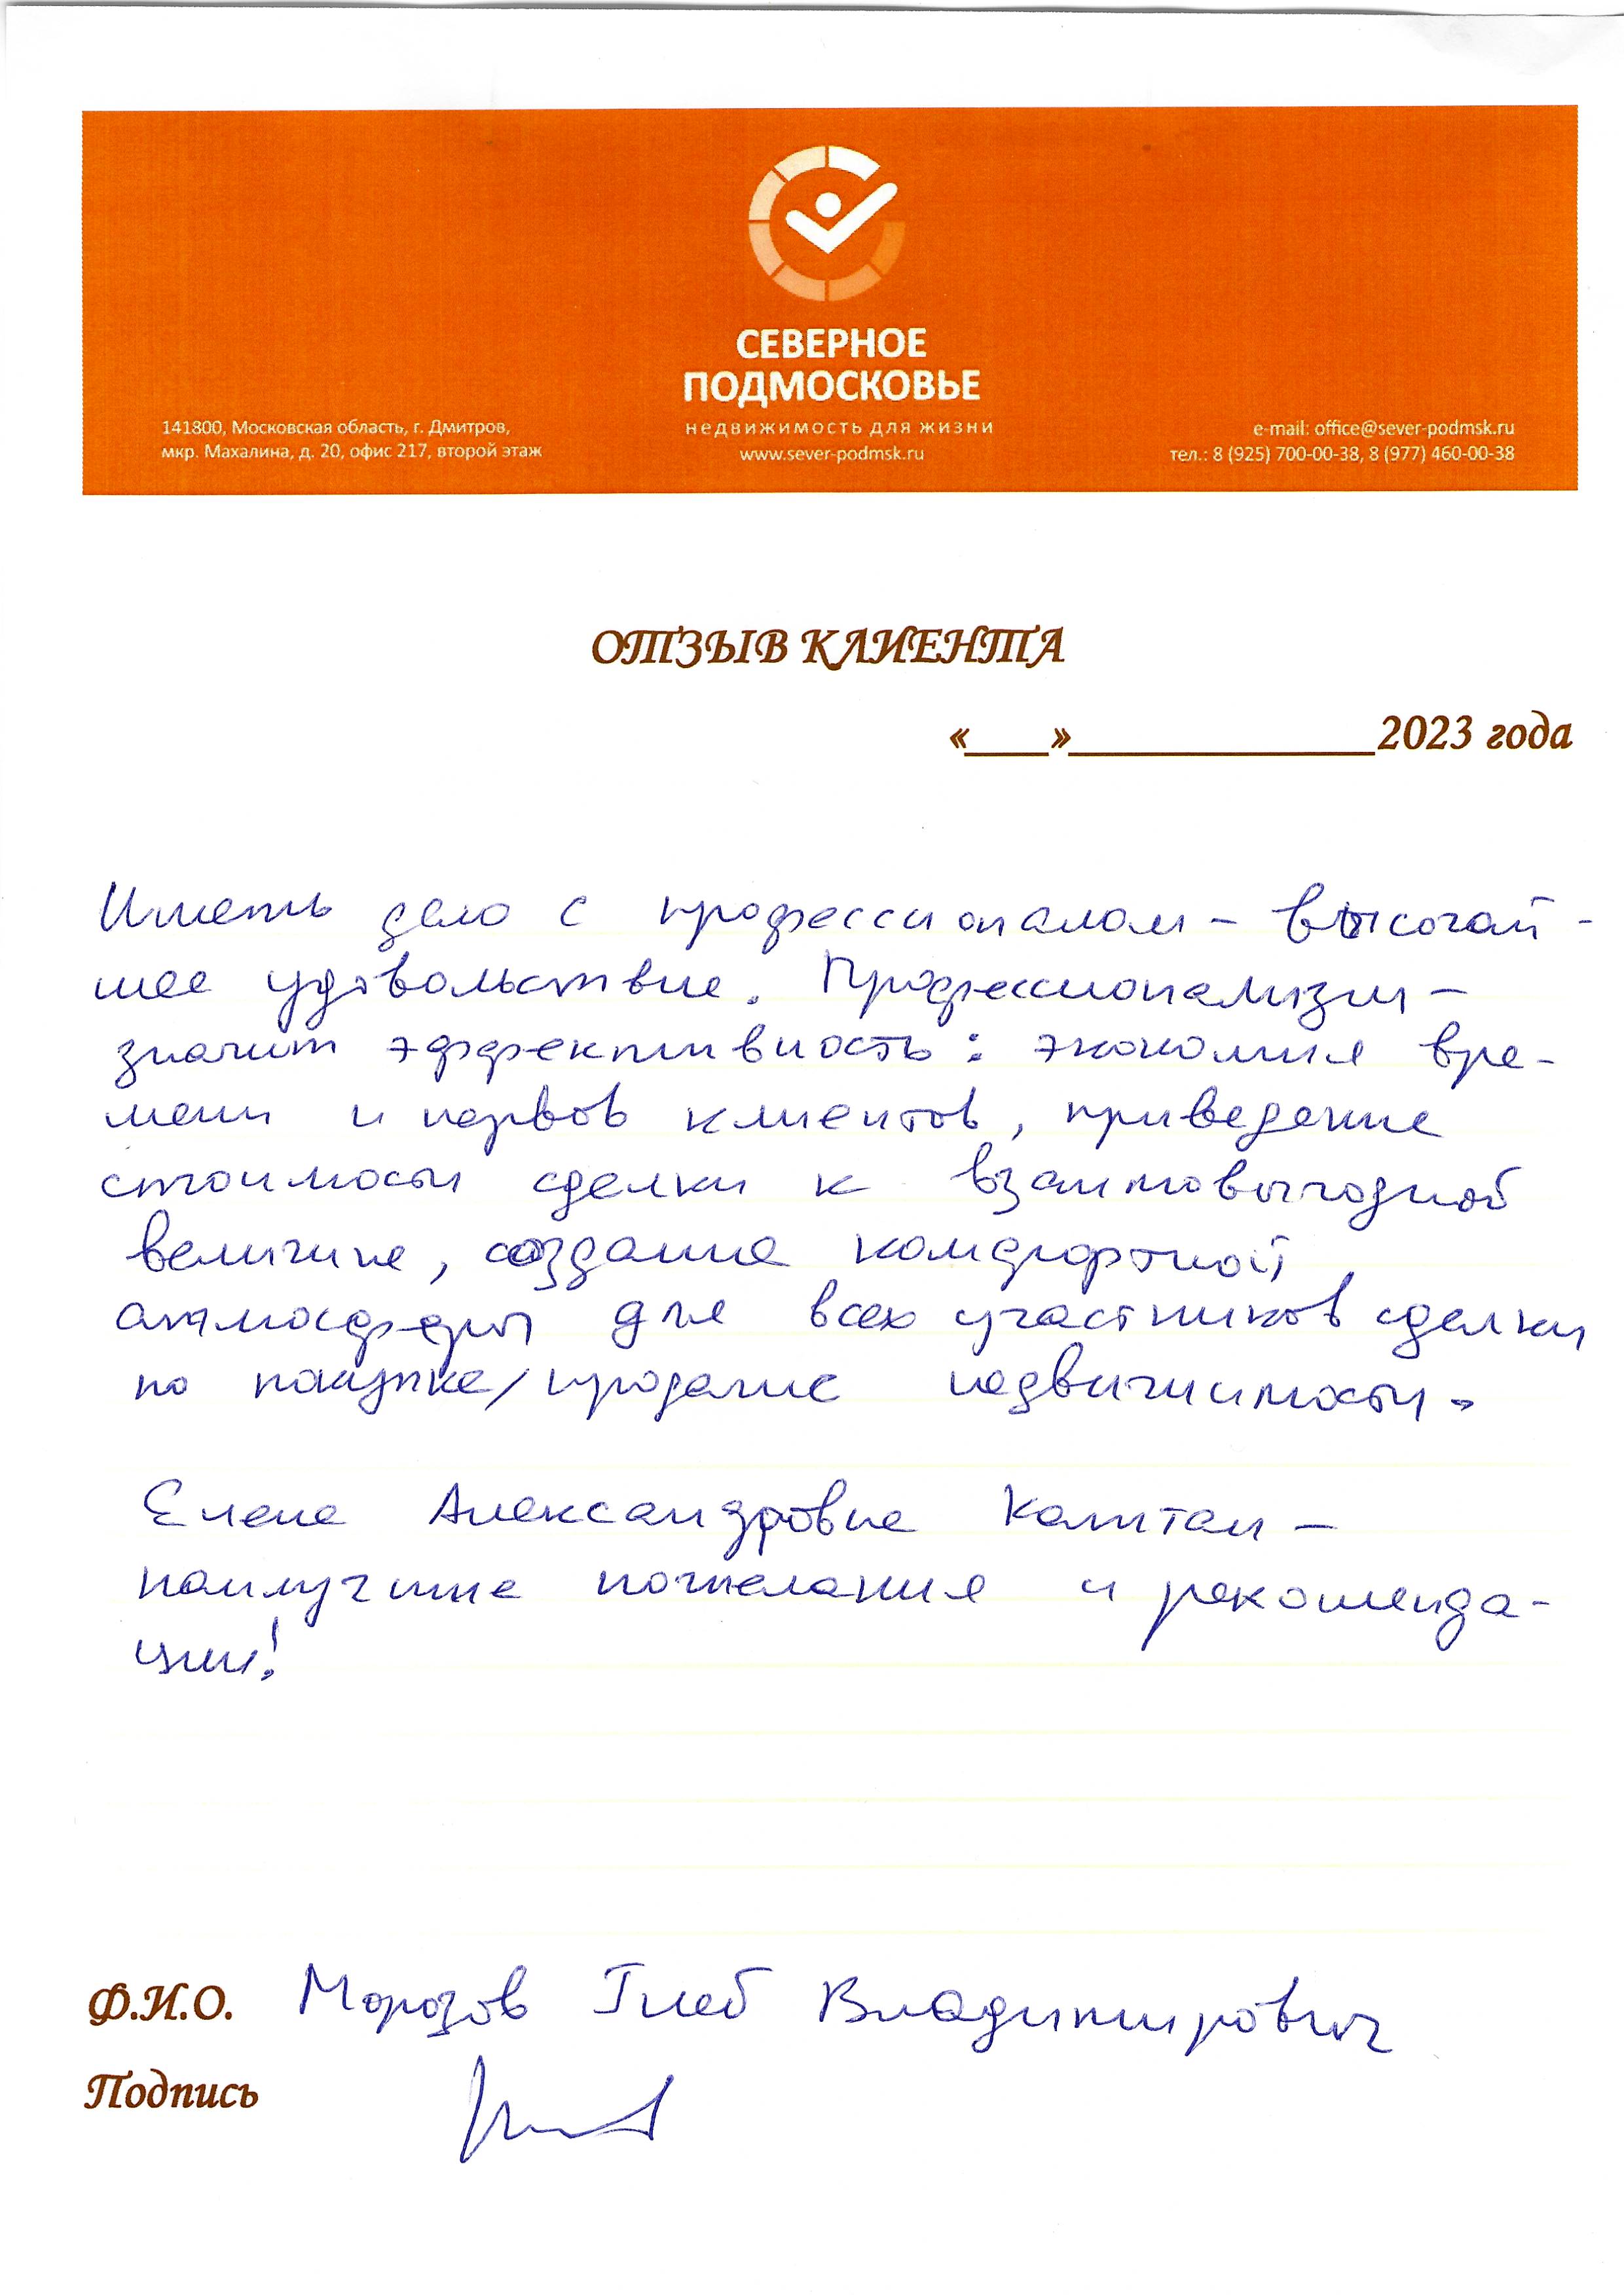 СЕВЕРНОЕ
ПОДМОСКОВЬЕ
недвижимость для жизни
www.sever-podmsk.ru
141800, Московская область, г. Дмитров,
мкр. Махалина, д. 20, офис 217, второй этаж
e-mail: office@sever-podmsk.ru
тел.: 8 (925) 700-00-38, 8 (977) 460-00-38
ОТЗЫВ КЛИЕНТА
«___»___________2023 года
Иметь дело с профессионалом – высочай-
шее удовольствие. Профессионализм –
значит эффективность: экономия вре-
мени и нервов клиентов, приведение
стоимости сделки к взаимовыгодной
величине, создание комфортной
атмосферы для всех участников сделки
по покупке/продаже недвижимости.
Елене Александровне Капитан –
наилучшие пожелания и рекоменда-
ции!
Ф.И.О. Морозов Глеб Владимирович
Подпись